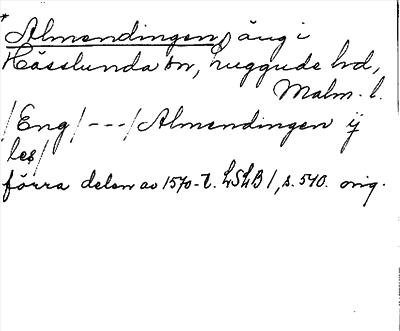 * Almendingen, äng i
Hässlunda sn, Luggude hd,
Malm. l.
/Eng/ - - - /Almendingen ij
les/
förra delen av 1570-t. LSLB 1, s. 540. orig.